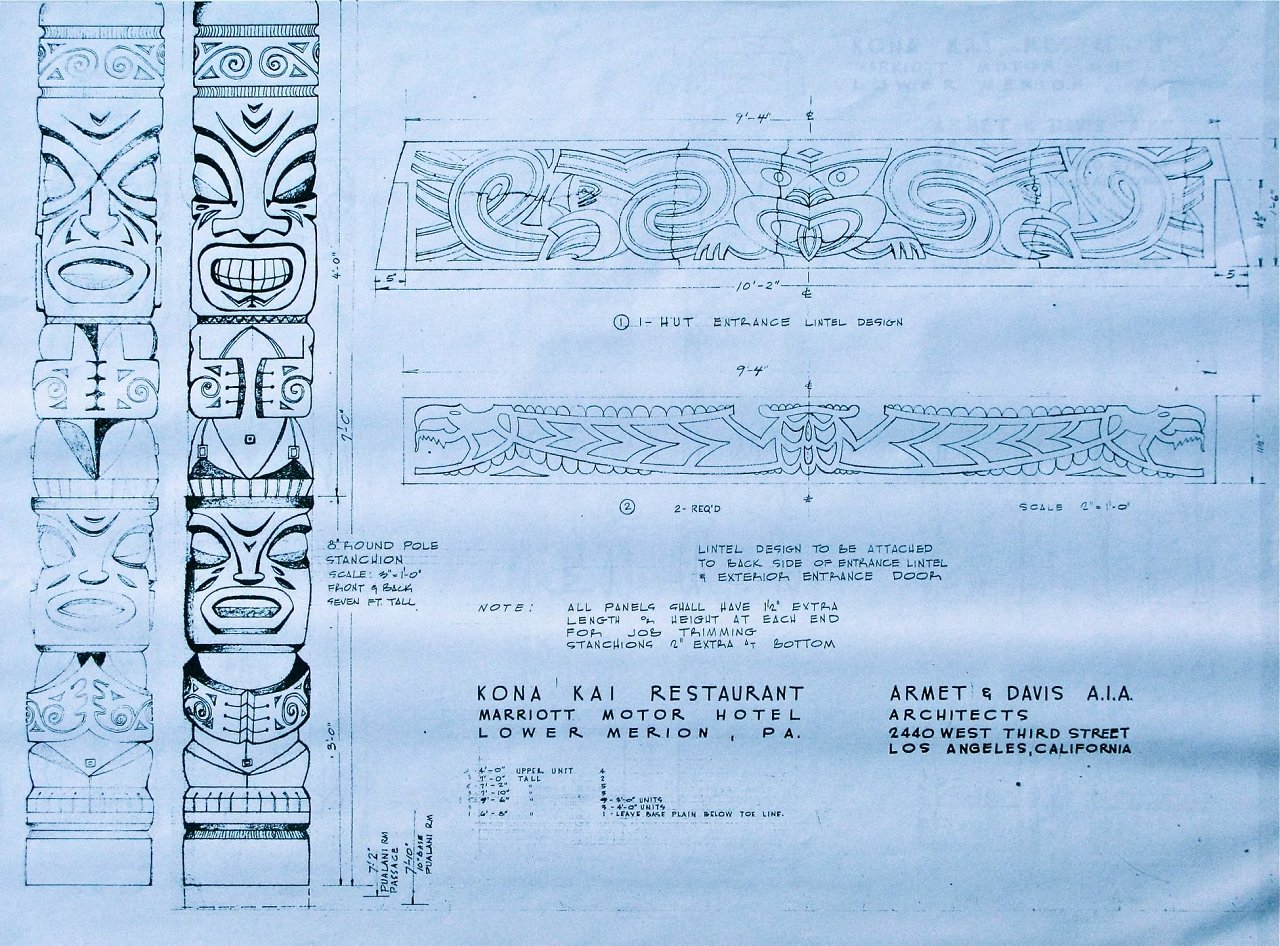 9'-4"
5"
10'-2"
5"
1 1- HUT ENTRANCE LINTEL DESIGN
9'-4"
2 2- REQ'D
SCALE 2"=1'-0"
4'-0"
7'-0"
3'-0"
8" ROUND POLE
STANCHION
SCALE: 3"=1'-0"
FRONT & BACK
SEVEN FT. TALL
LINTEL DESIGN TO BE ATTACHED
TO BACK SIDE OF ENTRANCE LINTEL
& EXTERIOR ENTRANCE DOOR
NOTE: ALL PANELS SHALL HAVE 1½" EXTRA
LENGTH OR HEIGHT AT EACH END
FOR JOB TRIMMING
STANCHIONS 2" EXTRA AT BOTTOM
KONA KAI RESTAURANT
MARRIOTT MOTOR HOTEL
LOWER MERION, PA.
ARMET & DAVIS A.I.A.
ARCHITECTS
2440 WEST THIRD STREET
LOS ANGELES, CALIFORNIA
4'-0" UPPER UNIT 4
7'-0" TALL 2
7'-2" " 5
7'-10" " 3
9'-6" " 9-3'-0" UNITS
3-4'-0" UNITS
1 6'-8" " 1-LEAVE BASE PLAIN BELOW TOE LINE.
7'-2"
PUALANI RM
PASSAGE
7'-10"
10" BASE
PUALANI RM